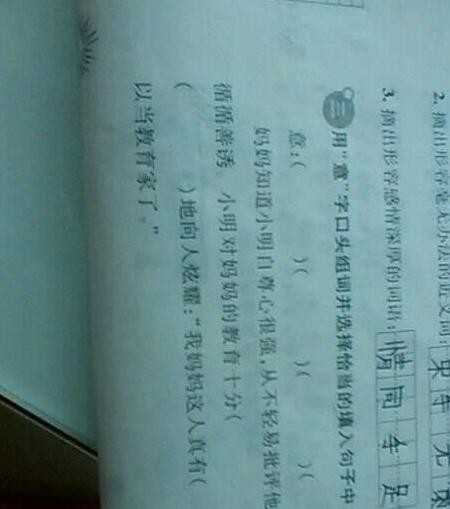 2. 摘出形容毫无办法的近义词：束手无策
3. 摘出形容感情深厚的词语：情同手足
三 用“意”字口头组词并选择恰当的填入句子中
意：（ ）（ ）（ ）（ ）
妈妈知道小明自尊心很强，从不轻易批评他
循循善诱。小明对妈妈的教育十分（
（ ）地向人炫耀：“我妈妈这人真有（
以当教育家了。”